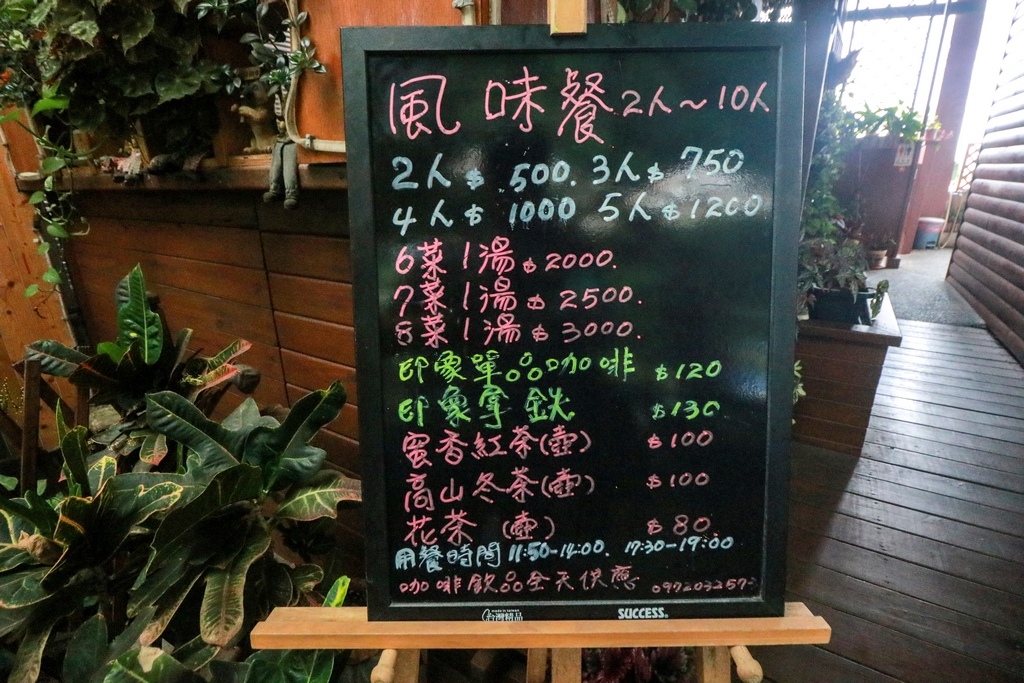 風味餐 2人～10人
2人$ 500. 3人$ 750
4人$ 1000 5人$1200
6菜1湯$2000.
7菜1湯$2500.
8菜1湯$3000.
印象單品咖啡 $120
印象拿鉄 $130
蜜香紅茶(壺) $100
高山冬茶(壺) $100
花茶 (壺) $80
用餐時間 11:50-14:00. 17:30-19:00
咖啡飲品全天供應
SUCCESS.